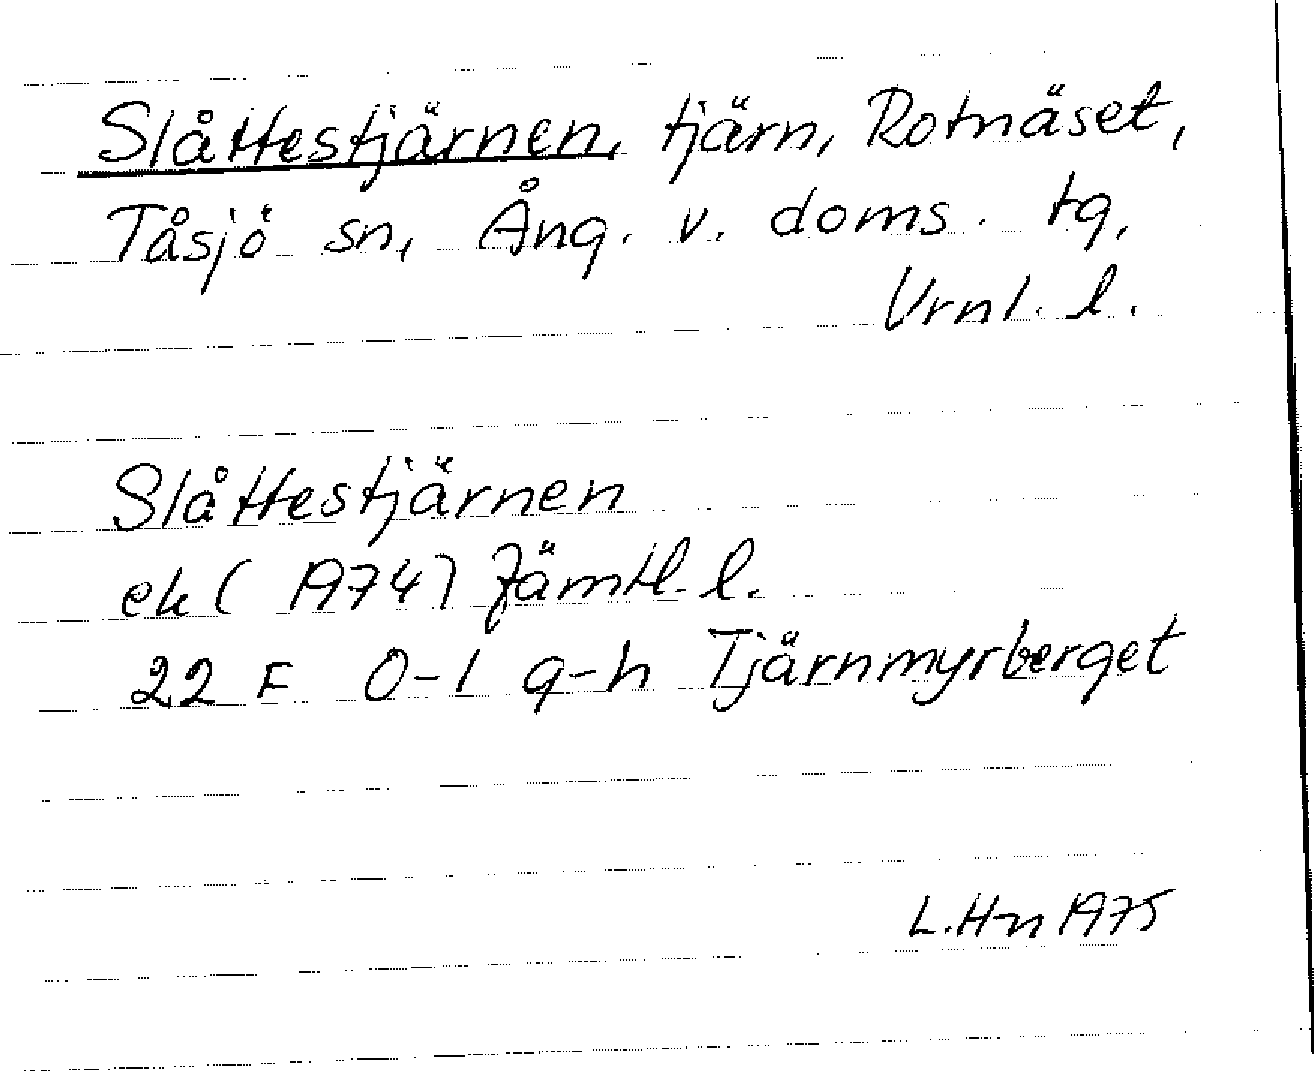 Slåttestjärnen, tjärn, Rotnäset,
Tåsjö sn, Ång. v. doms. tg,
Vrnl. l.
Slåttestjärnen
ek (1974) Jämtl. l.
22 F 0-1 g-h Tjärnmyrberget
L. Hn 1975